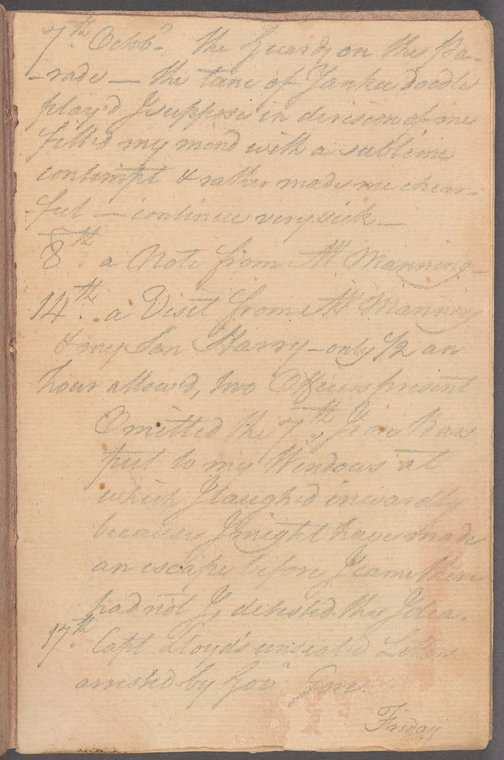 7th Octobr. the Guards on the Pa-
-rade — the tune of Yankee doodle
play'd I suppose in derision of me
fill'd my mind with a sublime
contempt & rather made me chear-
-ful — continue very sick —
8th a Note from Mr Manning —
14th. a Visit from Mr Manning
& my Son Harry — only 1/2 an
hour allow'd, two Officers present
Omitted the 7th, Iron Bars
put to my Windows at
which I laugh'd inwardly
because I might have made
an escape before I came there
had not I, detested the Idea.
17th. Capt. Lloyd's unsealed Letter
arrested by Govr
Friday